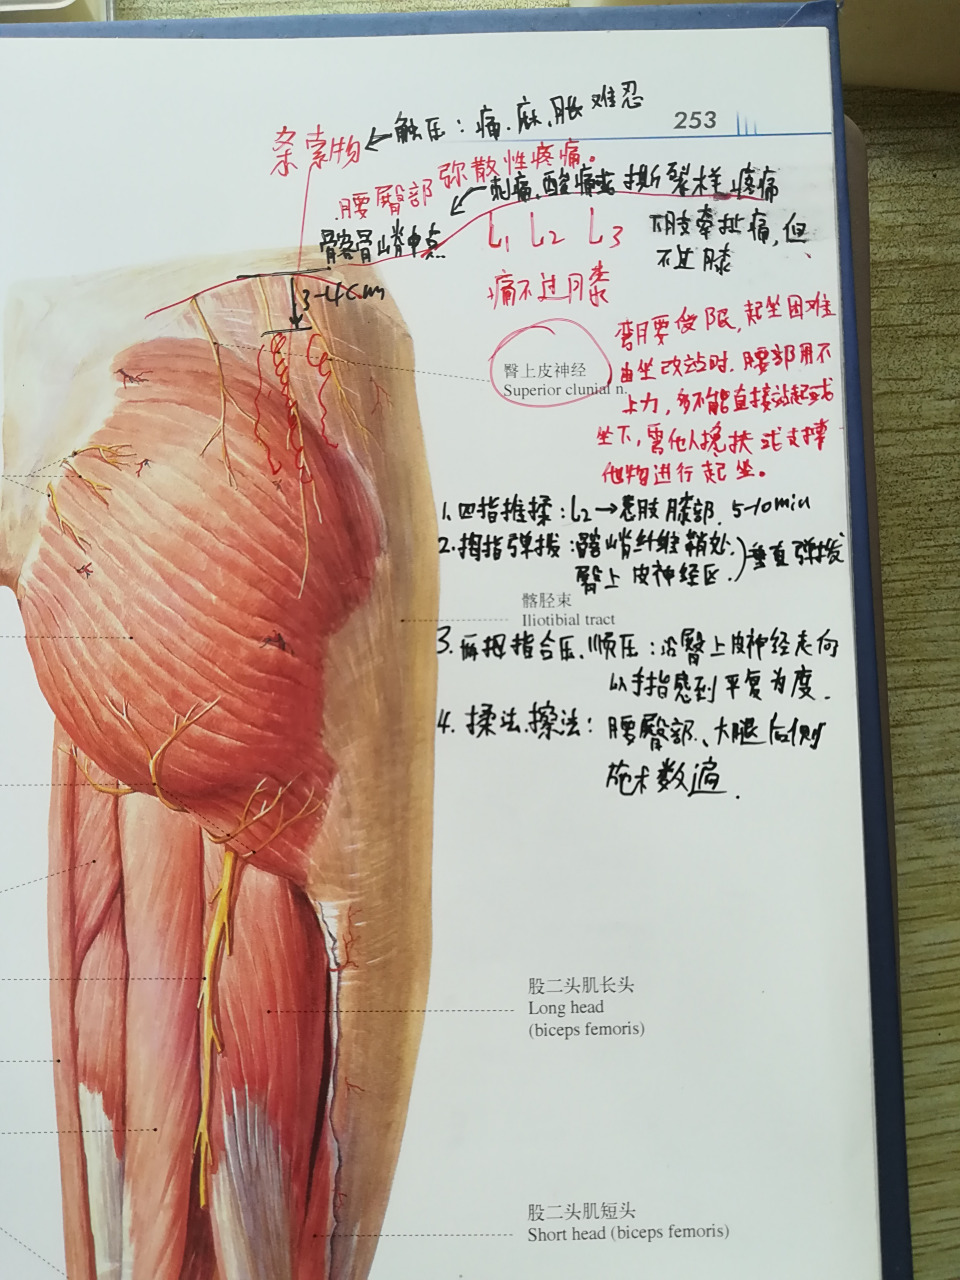 触压：痛、麻、胀难忍
253
条索物
腰臀部弥散性疼痛。
刺痛、酸痛或撕裂样疼痛
髂骨嵴中点
L1 L2 L3
下肢牵扯痛，但
不过膝
3-4cm
痛不过膝
弯腰受限，起坐困难
由坐改站时，腰部用不
上力，多不能直接站起或
坐下，需他人搀扶或支撑
他物进行起坐。
臀上皮神经
Superior clunial n.
1. 四指推揉：L2→患肢膝部，5-10min
2. 拇指弹拨：髂嵴纤维鞘处、
臀上皮神经区．)垂直弹拨
髂胫束
Iliotibial tract
3. 拇指合压、顺压：沿臀上皮神经走向
以手指感到平复为度．
4. 揉法、擦法：腰臀部、大腿后侧
施术数遍．
股二头肌长头
Long head
(biceps femoris)
股二头肌短头
Short head (biceps femoris)